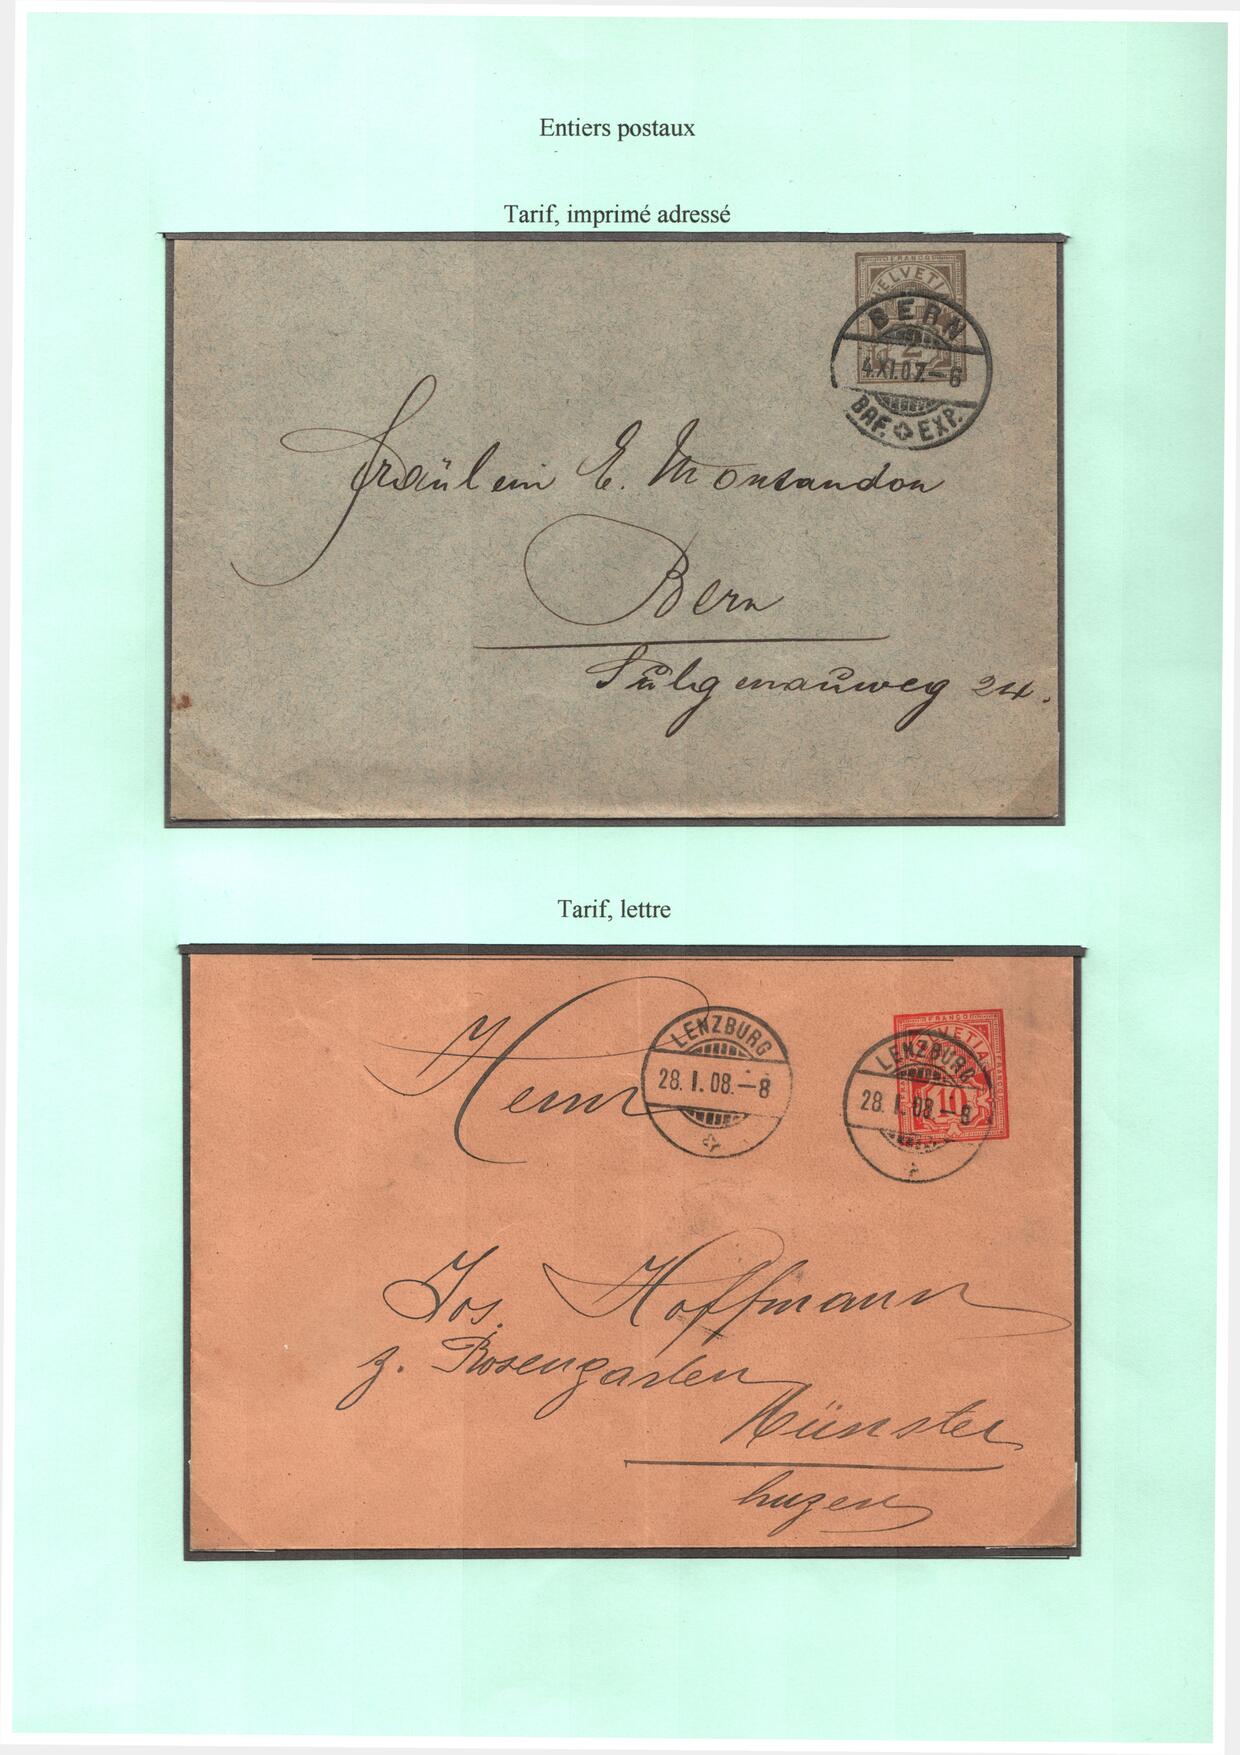 Entiers postaux
Tarif, imprimé adressé
FRANCO
HELVETIA
2
BERN
4.XI.07.–6
BRF. EXP.
Fräulein E. Montandon
Bern
Sulgenauweg 24.
Tarif, lettre
FRANCO
HELVETIA
10
LENZBURG
28. I. 08.–8
LENZBURG
28. I. 08.–8
Herrn
Jos. Hoffmann
z. Rosengarten
Münster
Luzern